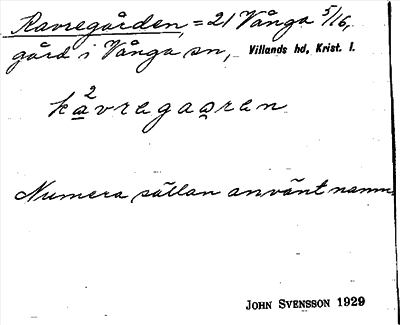 Ravregården, = 21 Vånga 5/16,
gård i Vånga sn, Villands hd, Krist. l.
2
kavregaaren
Numera sällan använt namn.
JOHN SVENSSON 1929